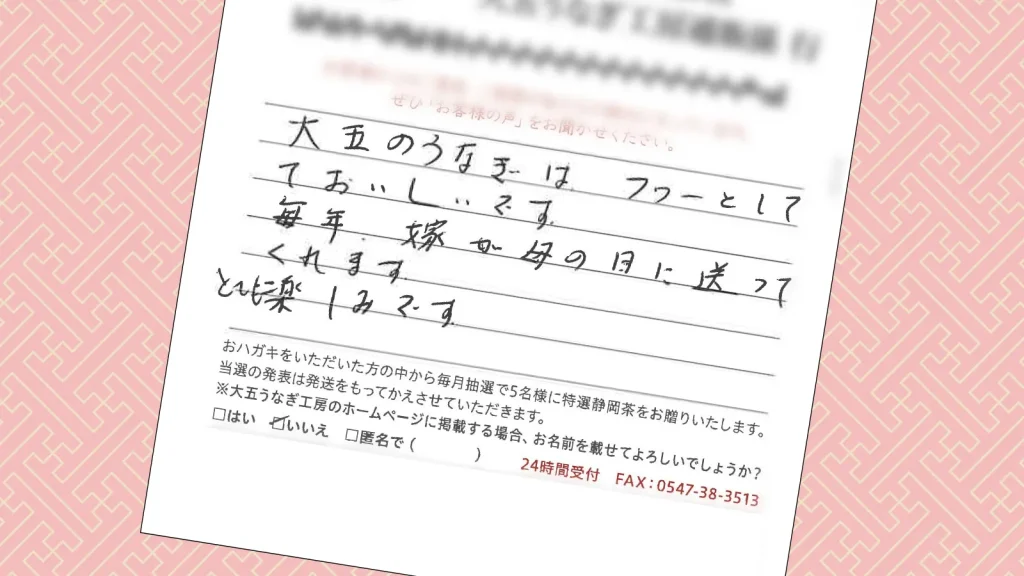 大五うなぎ工房通販係 行
ぜひ「お客様の声」をお聞かせください。
大五のうなぎは フワーとして
ておいしいです。
毎年、嫁が母の日に送って
くれます。
とても楽しみです。
おハガキをいただいた方の中から毎月抽選で5名様に特選静岡茶をお贈りいたします。
当選の発表は発送をもってかえさせていただきます。
※大五うなぎ工房のホームページに掲載する場合、お名前を載せてよろしいでしょうか？
□はい ☑いいえ □匿名で（ ）
24時間受付 FAX：0547-38-3513